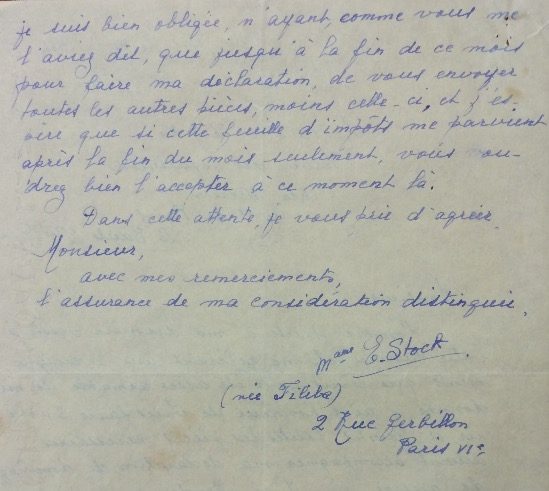 je suis bien obligée, n'ayant, comme vous me
l'aviez dit, que jusqu'à la fin de ce mois
pour faire ma déclaration, de vous envoyer
toutes les autres pièces, moins celle-ci, et j'es-
père que si cette feuille d'impôts me parvient
après la fin du mois seulement, vous vou-
drez bien l'accepter à ce moment là.
Dans cette attente, je vous prie d'agréer,
Monsieur,
avec mes remerciements,
l'assurance de ma considération distinguée.
Mame E. Stock
(née)
2 Rue Gerbillon
Paris VIe